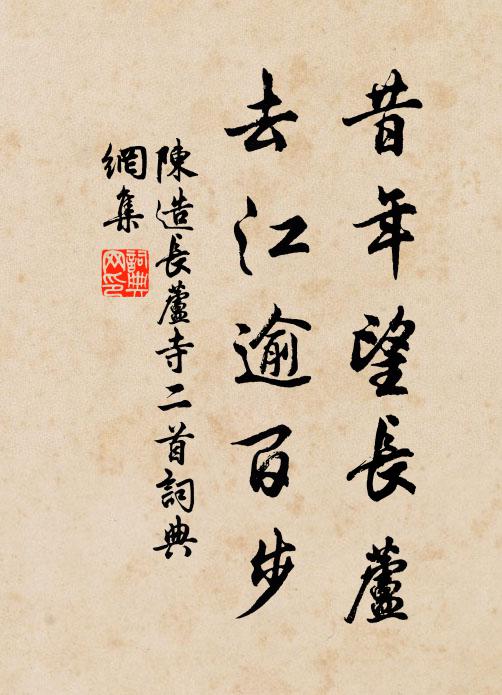 昔年望長蘆
去江逾百步
陳造長蘆寺二首詞典
網集
詞典
网印